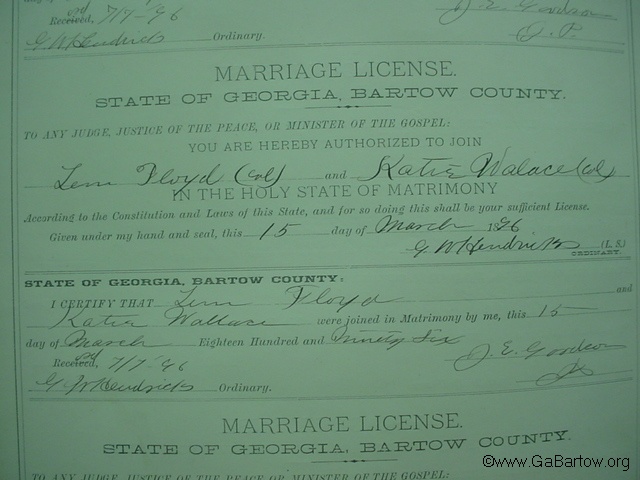 Received, 7/7-96
J. E. Goodson
G W Hendricks Ordinary.
J. P.
MARRIAGE LICENSE.
STATE OF GEORGIA, BARTOW COUNTY.
TO ANY JUDGE, JUSTICE OF THE PEACE, OR MINISTER OF THE GOSPEL:
YOU ARE HEREBY AUTHORIZED TO JOIN
Lem Floyd (Col) and Katie Walace (Col)
IN THE HOLY STATE OF MATRIMONY
According to the Constitution and Laws of this State, and for so doing this shall be your sufficient License.
Given under my hand and seal, this 15 day of March 1896
G W Hendricks (L. S.)
ORDINARY.
STATE OF GEORGIA, BARTOW COUNTY:
I CERTIFY THAT Lem Floyd and
Katie Wallace were joined in Matrimony by me, this 15
day of March Eighteen Hundred and Ninety Six
Received, 7/7-96 J. E. Goodson
G. W Hendricks Ordinary.
MARRIAGE LICENSE.
STATE OF GEORGIA, BARTOW COUNTY.
TO ANY JUDGE, JUSTICE OF THE PEACE OR MINISTER OF THE GOSPEL:
©www.GaBartow.org